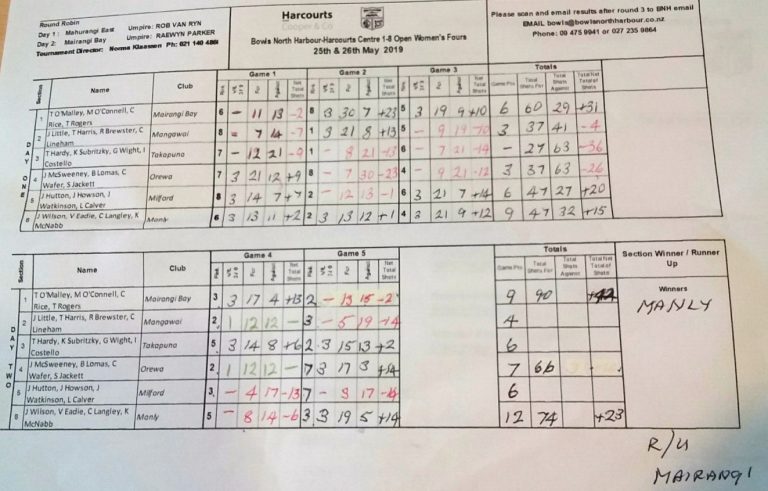 Round Robin
Day 1 : Mahurangi East Umpire: ROB VAN RYN
Day 2: Mairangi Bay Umpire: RAEWYN PARKER
Tournament Director: Norma Klaassen Ph: 021 140 4861
Harcourts
Cooper & Co
Bowls North Harbour-Harcourts Centre 1-8 Open Women's Fours
25th & 26th May 2019
Please scan and email results after round 3 to BNH email
EMAIL bowls@bowlsnorthharbour.co.nz
Phone: 09 475 9941 or 027 235 9864
Game 1 Game 2 Game 3 Totals
Section Name Club For Against Net Total Shots For Against Net Total Shots Game Pts Total Shots For Total Shots Against Total Net Total Shots
DAY ONE
1 T O'Malley, M O'Connell, C Rice, T Rogers Mairangi Bay 6 - 11 13 -2 8 3 30 7 +23 5 3 19 9 +10 6 60 29 +31
2 J Little, T Harris, R Brewster, C Lineham Mangawai 8 - 7 14 -7 1 3 21 8 +13 5 - 9 19 -10 3 37 41 -4
3 T Hardy, K Subritzky, G Wight, I Costello Takapuna 7 - 12 21 -9 1 - 8 21 -13 6 - 7 21 -14 - 27 63 -36
4 J McSweeney, B Lomas, C Wafer, S Jackett Orewa 7 3 21 12 +9 8 - 7 30 -23 4 - 9 21 -12 3 37 63 -26
5 J Hutton, J Howson, J Watkinson, L Calver Milford 8 3 14 7 +7 2 - 12 13 -1 6 3 21 7 +14 6 47 27 +20
6 J Wilson, V Eadie, C Langley, K McNabb Manly 6 3 13 11 +2 2 3 13 12 +1 4 3 21 9 +12 9 47 32 +15
Game 4 Game 5 Totals Section Winner / Runner Up
Section Name Club Rink For Against Net Total Shots Rink For Against Net Total Shots Game Pts Total Shots For Total Shots Against Total Net Total of Shots
Winners
MANLY
DAY TWO
1 T O'Malley, M O'Connell, C Rice, T Rogers Mairangi Bay 3 3 17 4 +13 2 - 13 15 -2 9 90
2 J Little, T Harris, R Brewster, C Lineham Mangawai 2 1 12 12 - 3 - 5 19 -14 4
3 T Hardy, K Subritzky, G Wight, I Costello Takapuna 5 3 14 8 +6 2 3 15 13 +2 6
4 J McSweeney, B Lomas, C Wafer, S Jackett Orewa 2 1 12 12 - 7 3 17 3 +14 7 66
5 J Hutton, J Howson, J Watkinson, L Calver Milford 3 - 4 17 -13 7 - 3 17 6
6 J Wilson, V Eadie, C Langley, K McNabb Manly 5 - 8 14 -6 3 3 19 5 +14 12 74 +23
R/U
MAIRANGI